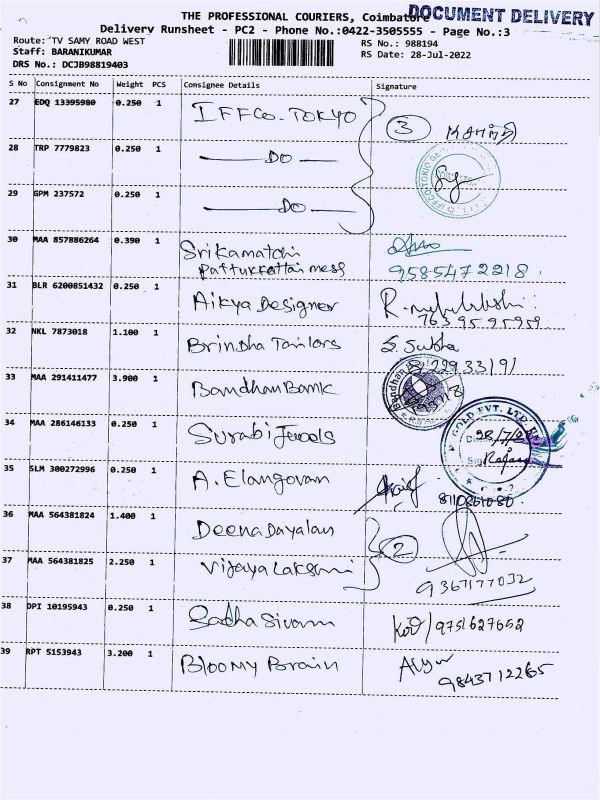 THE PROFESSIONAL COURIERS, Coimbatore
DOCUMENT DELIVERY
Delivery Runsheet - PC2 - Phone No.:0422-3505555 - Page No.:3
Route: TV SAMY ROAD WEST
RS No.: 988194
Staff: BARANIKUMAR
RS Date: 28-Jul-2022
DRS No.: DCJB98819403
S No Consignment No Weight PCS Consignee Details Signature
27 EDQ 13395980 0.250 1 IFFCo-TOKYO 3
28 TRP 7779823 0.250 1 DO
29 GPM 237572 0.250 1 DO
30 MAA 857886264 0.390 1 Srikamatchi
Pattukkottai mess 9585472218
31 BLR 6200851432 0.250 1 Aikya Designer
7639595959
32 NKL 7873018 1.100 1 Brindha Tailors S. Subha
33 MAA 291411477 3.900 1 Bandhan Bank
34 MAA 286146133 0.250 1 Surabi Jewels
GOLD PVT. LTD
35 SLM 300272996 0.250 1 A. Elangovan
8110861080
36 MAA 564381824 1.400 1 Deena Dayalan
2
37 MAA 564381825 2.250 1 Vijaya Lakshmi
9367177032
38 DPI 10195943 0.250 1 Sadha Sivam 9751627652
39 RPT 5153943 3.200 1 Bloomy Brain
9843712265